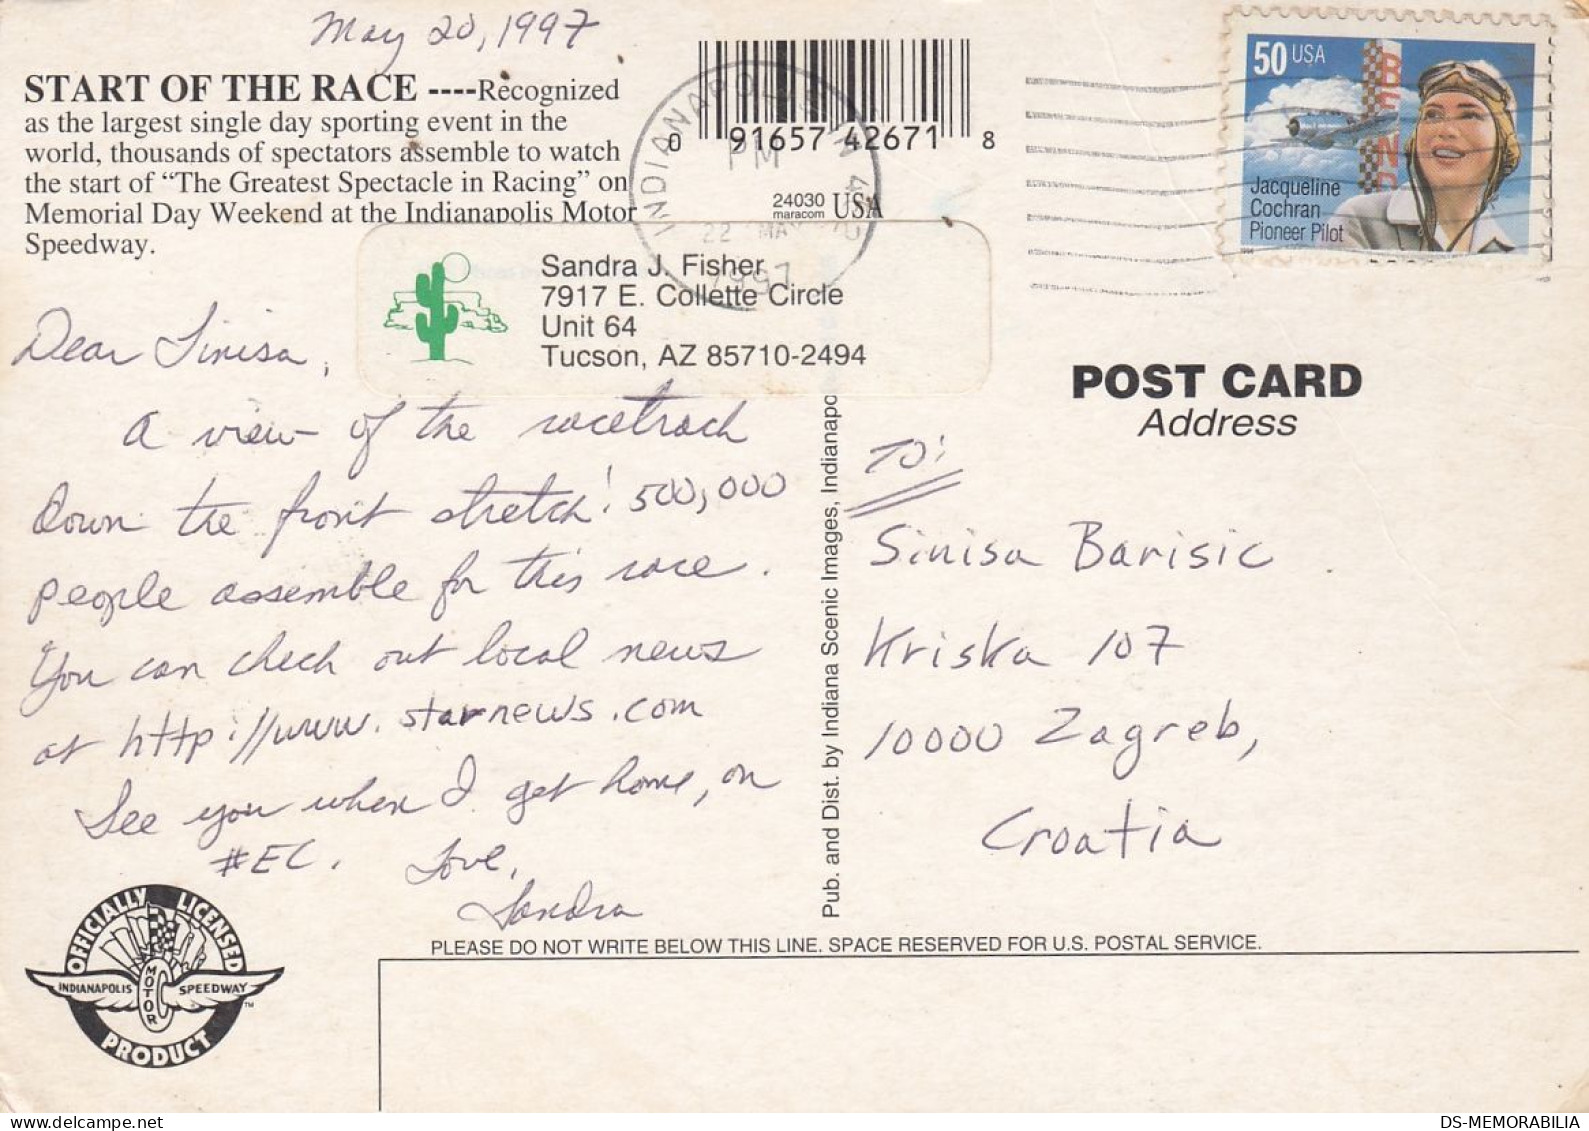 May 20, 1997
START OF THE RACE ----Recognized
as the largest single day sporting event in the
world, thousands of spectators assemble to watch
the start of “The Greatest Spectacle in Racing” on
Memorial Day Weekend at the Indianapolis Motor
Speedway.
0 91657 42671 8
24030
maracom USA
INDIANAPOLIS IN
PM
22 MAY
1997
50 USA
BEND
Jacqueline
Cochran
Pioneer Pilot
Sandra J. Fisher
7917 E. Collette Circle
Unit 64
Tucson, AZ 85710-2494
Dear Sinisa,
A view of the racetrack
down the front stretch! 500,000
people assemble for this race.
You can check out local news
at http://www.starnews.com
See you when I get home, on
#EC. Love,
Sandra
Pub. and Dist. by Indiana Scenic Images, Indianapo
POST CARD
Address
TO:
Sinisa Barisic
Kriska 107
10000 Zagreb,
Croatia
PLEASE DO NOT WRITE BELOW THIS LINE. SPACE RESERVED FOR U.S. POSTAL SERVICE.
OFFICIALLY LICENSED
INDIANAPOLIS MOTOR SPEEDWAY
TM
PRODUCT
DS-MEMORABILIA